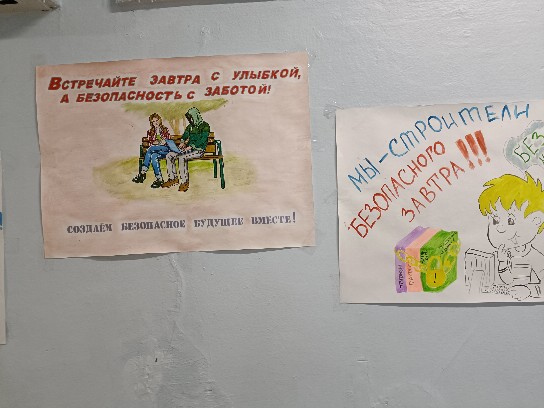 Встречайте завтра с улыбкой,
а безопасность с заботой!
Создаём безопасное будущее вместе!
МЫ-СТРОИТЕЛИ
БЕЗОПАСНОГО
ЗАВТРА!!!
БЕЗ